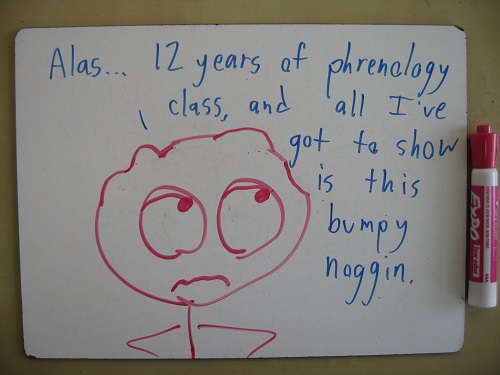 Alas... 12 years of phrenology
class, and all I've
got to show
is this
bumpy
noggin.
EXPO